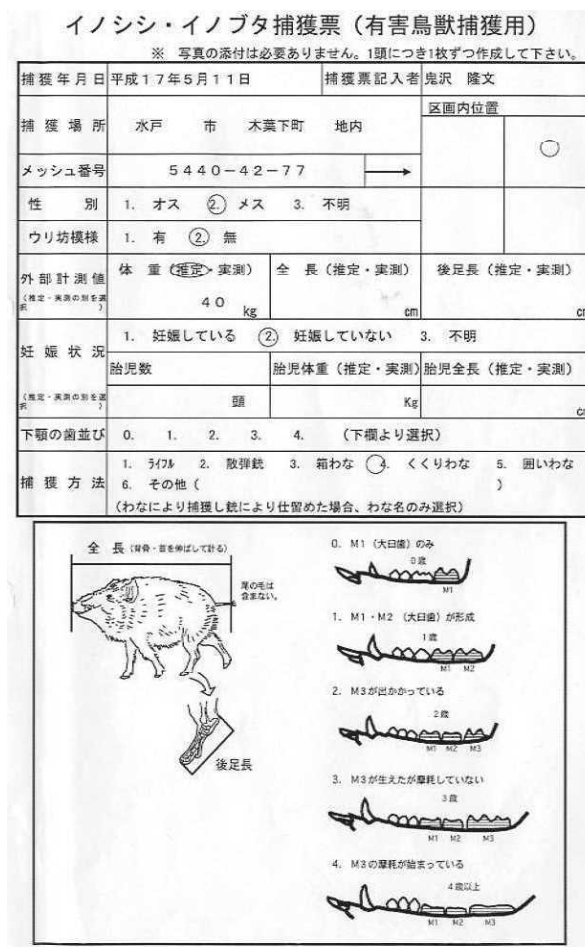 イノシシ・イノブタ捕獲票（有害鳥獣捕獲用）
※ 写真の添付は必要ありません。1頭につき1枚ずつ作成して下さい。
捕獲年月日 平成17年5月11日 捕獲票記入者 鬼沢 隆文
捕獲場所 水戸 市 木葉下町 地内 区画内位置
メッシュ番号 5440-42-77
性別 1. オス 2. メス 3. 不明
ウリ坊模様 1. 有 2. 無
外部計測値 体重（推定・実測） 全長（推定・実測） 後足長（推定・実測）
（推定・実測の別を選択）
40 kg cm cm
妊娠状況 1. 妊娠している 2. 妊娠していない 3. 不明
胎児数 胎児体重（推定・実測） 胎児全長（推定・実測）
（推定・実測の別を選択）
頭 Kg cm
下顎の歯並び 0. 1. 2. 3. 4. （下欄より選択）
捕獲方法 1. ライフル 2. 散弾銃 3. 箱わな 4. くくりわな 5. 囲いわな
6. その他（ ）
（わなにより捕獲し銃により仕留めた場合、わな名のみ選択）
全長（背骨・首を伸ばして計る）
尾の毛は
含まない。
後足長
0. M1（大臼歯）のみ
0歳
M1
1. M1・M2（大臼歯）が形成
1歳
M1 M2
2. M3が出かかっている
2歳
M1 M2 M3
3. M3が生えたが摩耗していない
3歳
M1 M2 M3
4. M3の摩耗が始まっている
4歳以上
M1 M2 M3